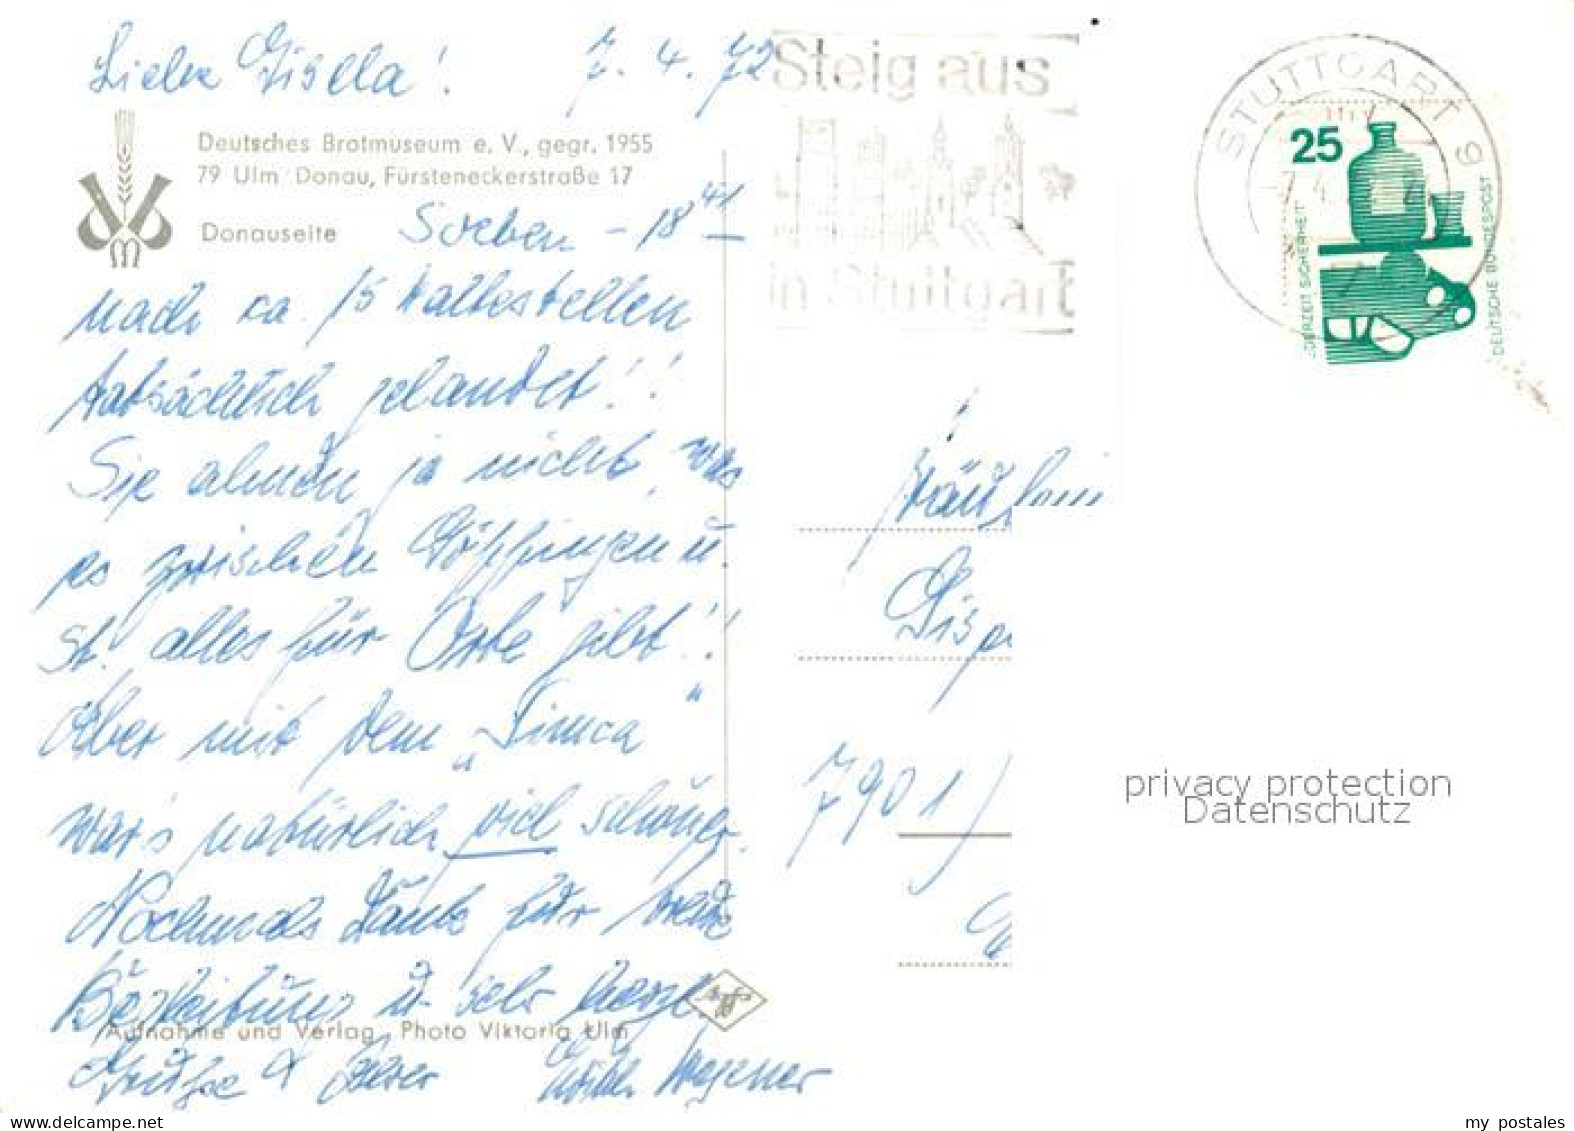 Liebe Gisela! 7.4.72
Deutsches Brotmuseum e. V., gegr. 1955
79 Ulm Donau, Fürsteneckerstraße 17
Donauseite
Soeben - 18 41
nach ca. 15 Haltestellen
tatsächlich gelandet!!
Sie ahnen ja nicht, was
es zwischen Göppingen u.
St. alles für Orte gibt!!
Aber mit dem „Simca"
war's natürlich viel schöner.
Nochmals Dank für
Begleitung u. sehr herzl.
Grüße Wegener
Aufnahme und Verlag Photo Viktoria Ulm
Steig aus
in Stuttgart
STUTTGART 9
25
JEDERZEIT SICHERHEIT
DEUTSCHE BUNDESPOST
Fräulein
7901
privacy protection
Datenschutz
my postales